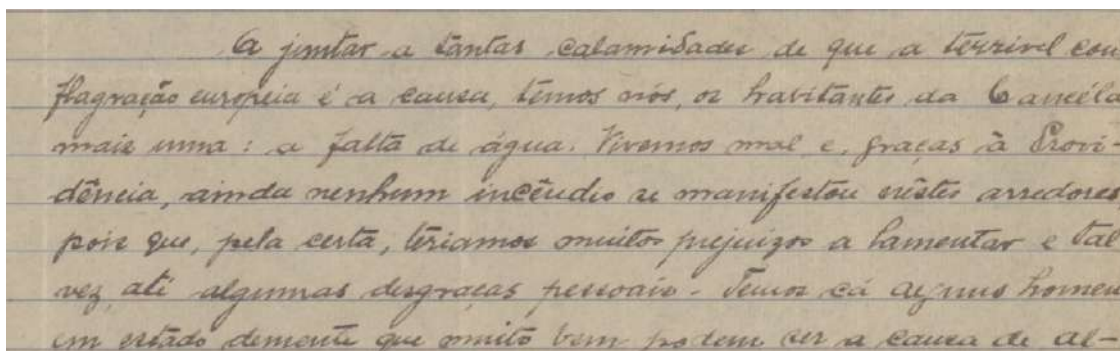 A juntar a tantas calamidades de que a terrivel con
flagração europeia é a causa, temos nós, os habitantes da Cancéla
mais uma: a falta de água. Vivemos mal e, graças à Provi-
dência, ainda nenhum incêndio se manifestou nêstes arredores,
pois que, pela certa, teriamos muitos prejuizos a lamentar e tal
vez, até algumas desgraças pessoais. Temos cá alguns homens
em estado demente que muito bem podem ser a causa de al-